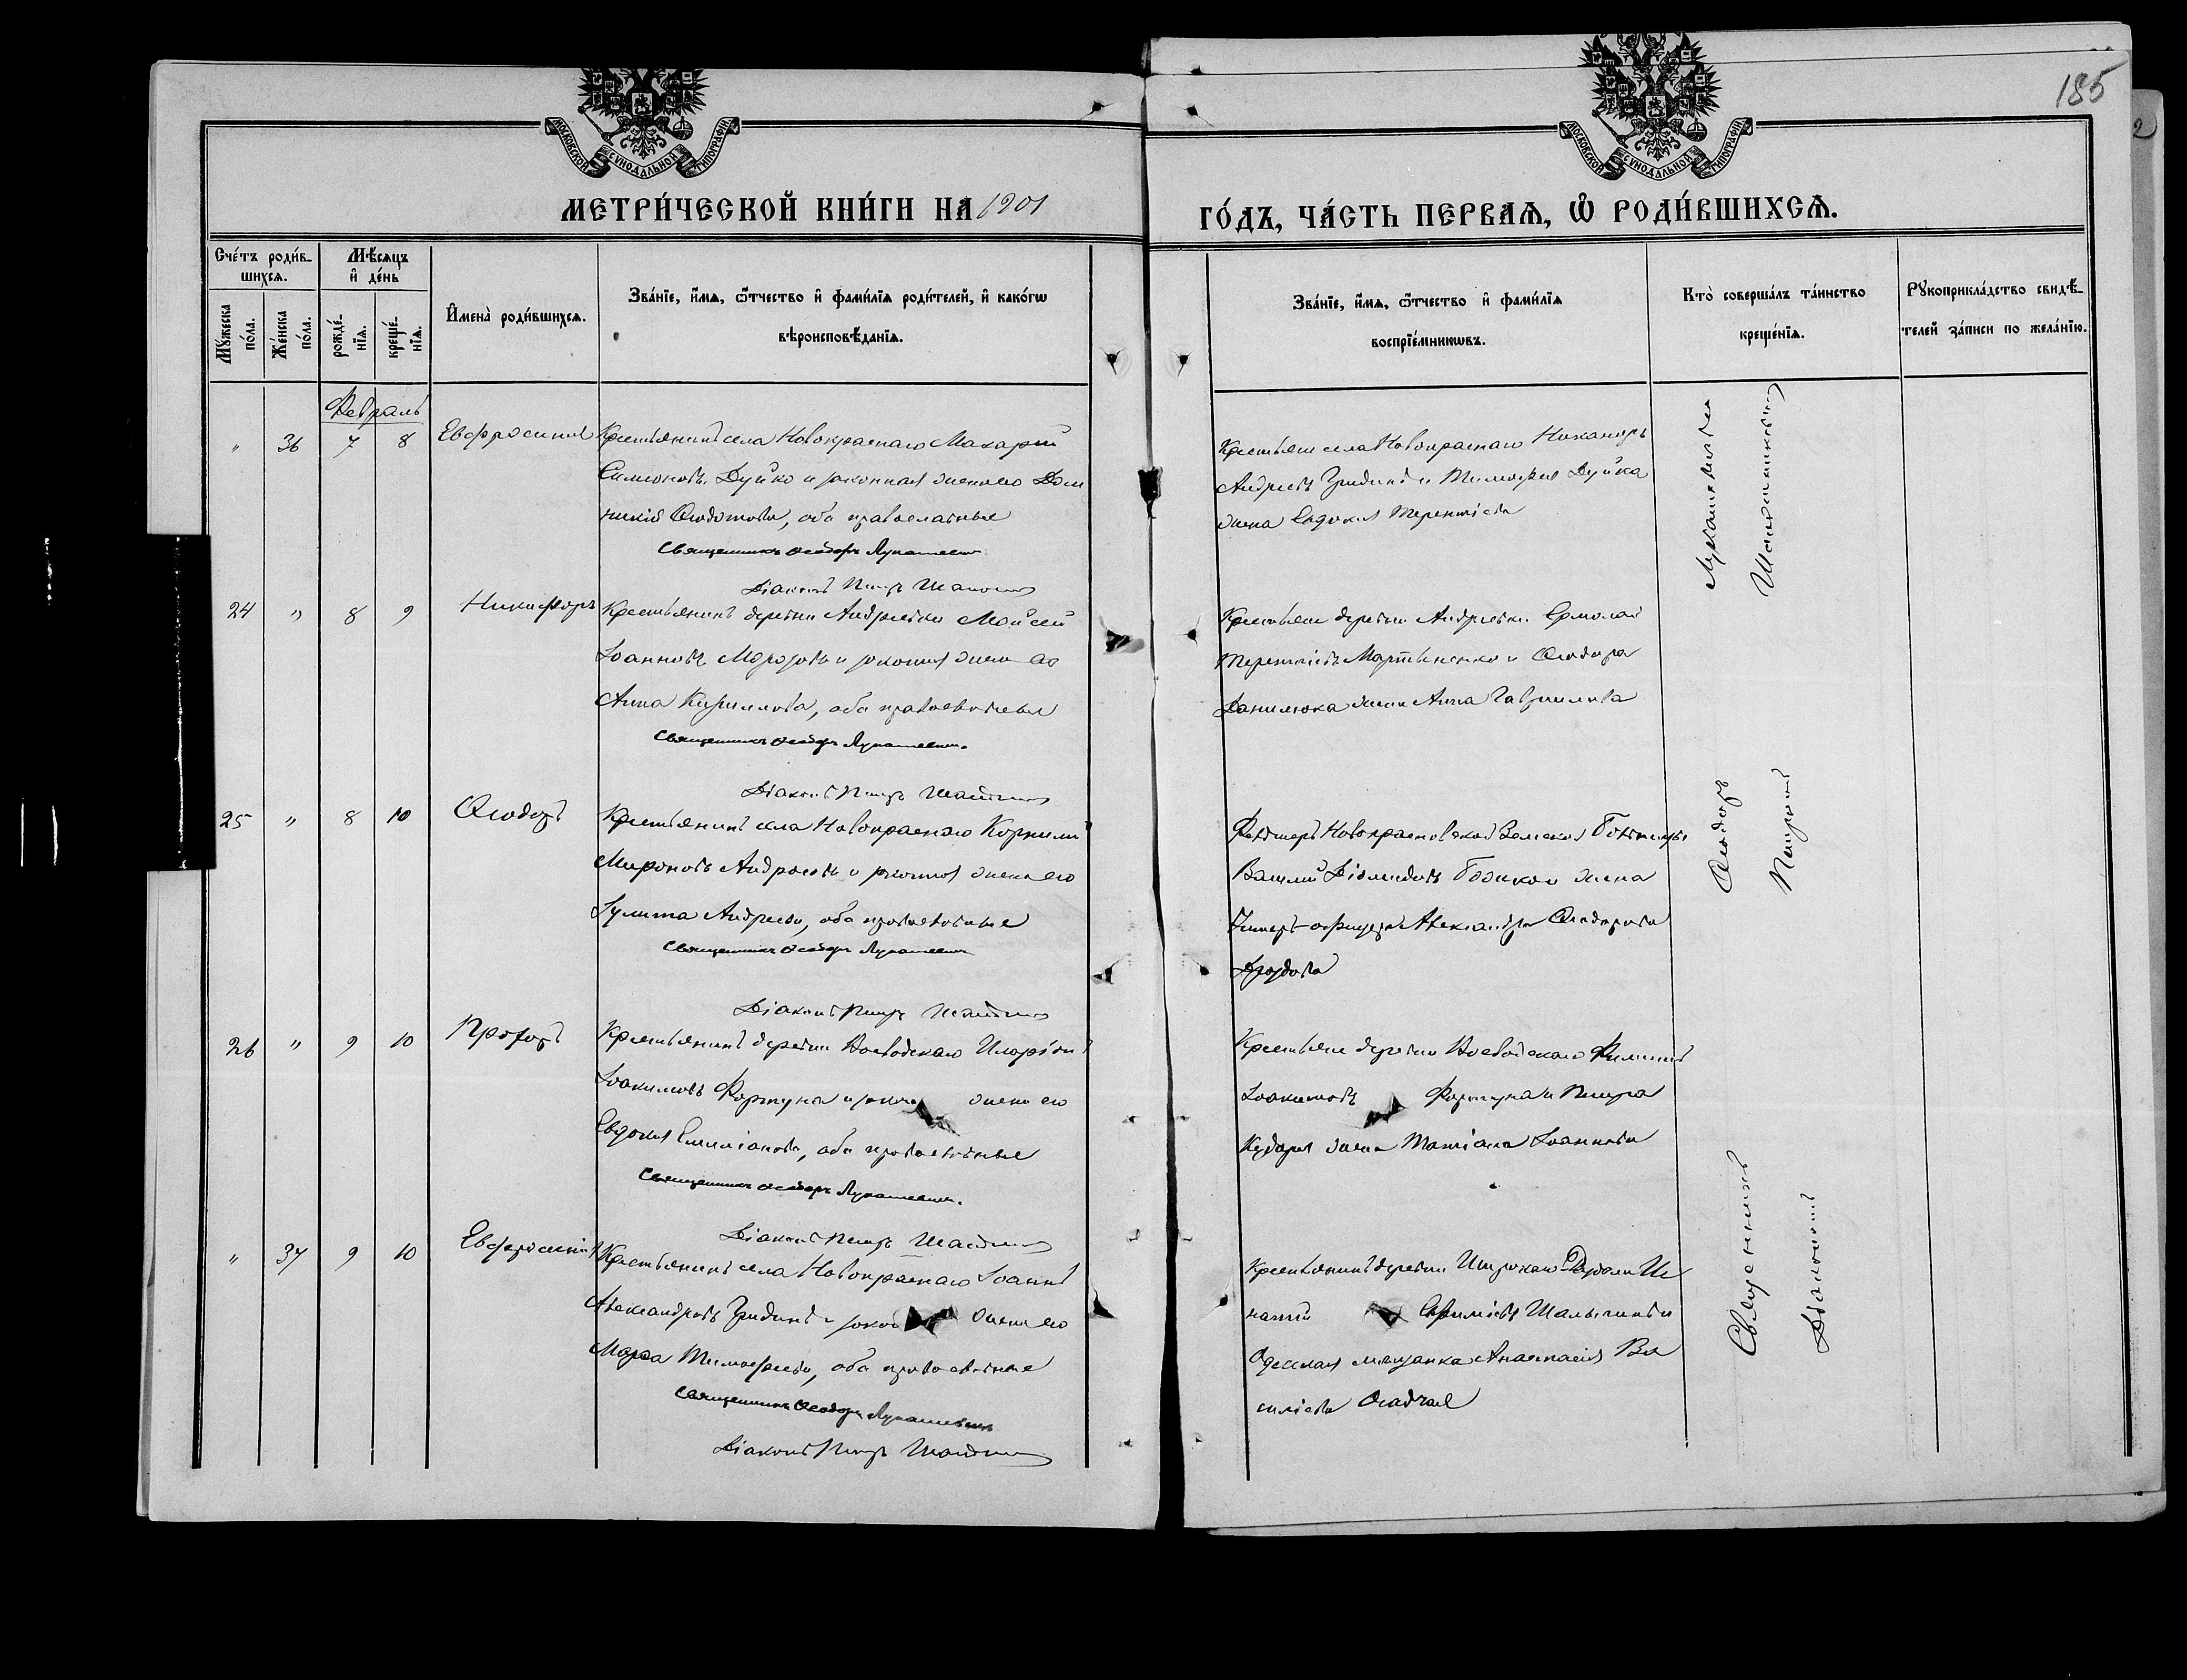 185
2
МОСКОВСКОЙ СУНОДАЛЬНОЙ ТИПОГРАФІИ
МОСКОВСКОЙ СУНОДАЛЬНОЙ ТИПОГРАФІИ
МЕТРИ́ЧЕСКОЙ КНИ́ГИ НА 1901
ГО́ДЪ, ЧА́СТЬ ПЕРВАѦ, Ѿ РОДИ́ВШИХСѦ.
Сче́тъ роди́в-
шихсѧ.
Мѣ́сѧцъ
и҆ де́нь
Мꙋ́жеска
по́ла.
Же́нска
по́ла.
рожде́-
нїѧ.
креще́-
нїѧ.
И҆мена̀ роди́вшихсѧ.
Зва́нїе, и҆́мѧ, ѻ҆́тчество и҆ фами́лїѧ роди́телей, и҆ како́гѡ
вѣроисповѣ́данїѧ.
Зва́нїе, и҆́мѧ, ѻ҆́тчество и҆ фами́лїѧ
воспрїе́мникѡвъ.
Кто̀ соверша́лъ та́инство
креще́нїѧ.
Рꙋкоприкла́дство свидѣ́-
телей за́писи по жела́нїю.
Февраль
" 36 7 8 Евфросинія Крестьянинъ села Новокраснаго Макарій
Симеоновъ Дуйко и законная жена его Дом
никія Ѳеодотова, оба православные
Священникъ Ѳеодоръ Лукашевичъ
Діаконъ Петръ
Крестьяне села Новокраснаго Никаноръ
Андреевъ Гридинъ и Тимофея Дуйка
жена Евдокія Терентіева
24 " 8 9 Никифоръ Крестьянинъ деревни Андреевки Моисей
Іоанновъ Морозовъ и законная жена его
Анна Кириллова, оба православные
Священникъ Ѳеодоръ Лукашевичъ.
Діаконъ Петръ
Крестьяне деревни Андреевки Ермолай
Терентіевъ Мартыненко и Ѳеодора
Данилюка жена Анна Гавриилова
25 " 8 10 Ѳеодоръ Крестьянинъ села Новокраснаго Корнилій
Мироновъ Андреевъ и законная жена его
Іулитта Андреева, оба православные
Священникъ Ѳеодоръ Лукашевичъ
Діаконъ Петръ
Фельдшеръ Новокрасновской Земской Больницы
Василій Діомидовъ жена
Унтеръ-офицера Александра Ѳеодорова
Дроздова
26 " 9 10 Прохоръ Крестьянинъ деревни Воеводскаго Иларіонъ
Іоакимовъ Фортуна и законная жена его
Евдокія Емиліанова, оба православные
Священникъ Ѳеодоръ Лукашевичъ.
Діаконъ Петръ
Крестьяне деревни Воеводскаго Филиппъ
Іоакимовъ Фортуна и Петра
жена Татіана Іоаннова
" 37 9 10 Евфросинія Крестьянинъ села Новокраснаго Іоаннъ
Александровъ Гридинъ и законная жена его
Марѳа Тимоѳеева, оба православные
Священникъ Ѳеодоръ Лукашевичъ
Діаконъ Петръ
Крестьянинъ деревни Иг
натій Ефиміевъ Шалыгинъ и
Одесская мещанка Анастасія Ва
силіева Осадчая
Священникъ Ѳеодоръ Лукашевичъ
Діаконъ Петръ